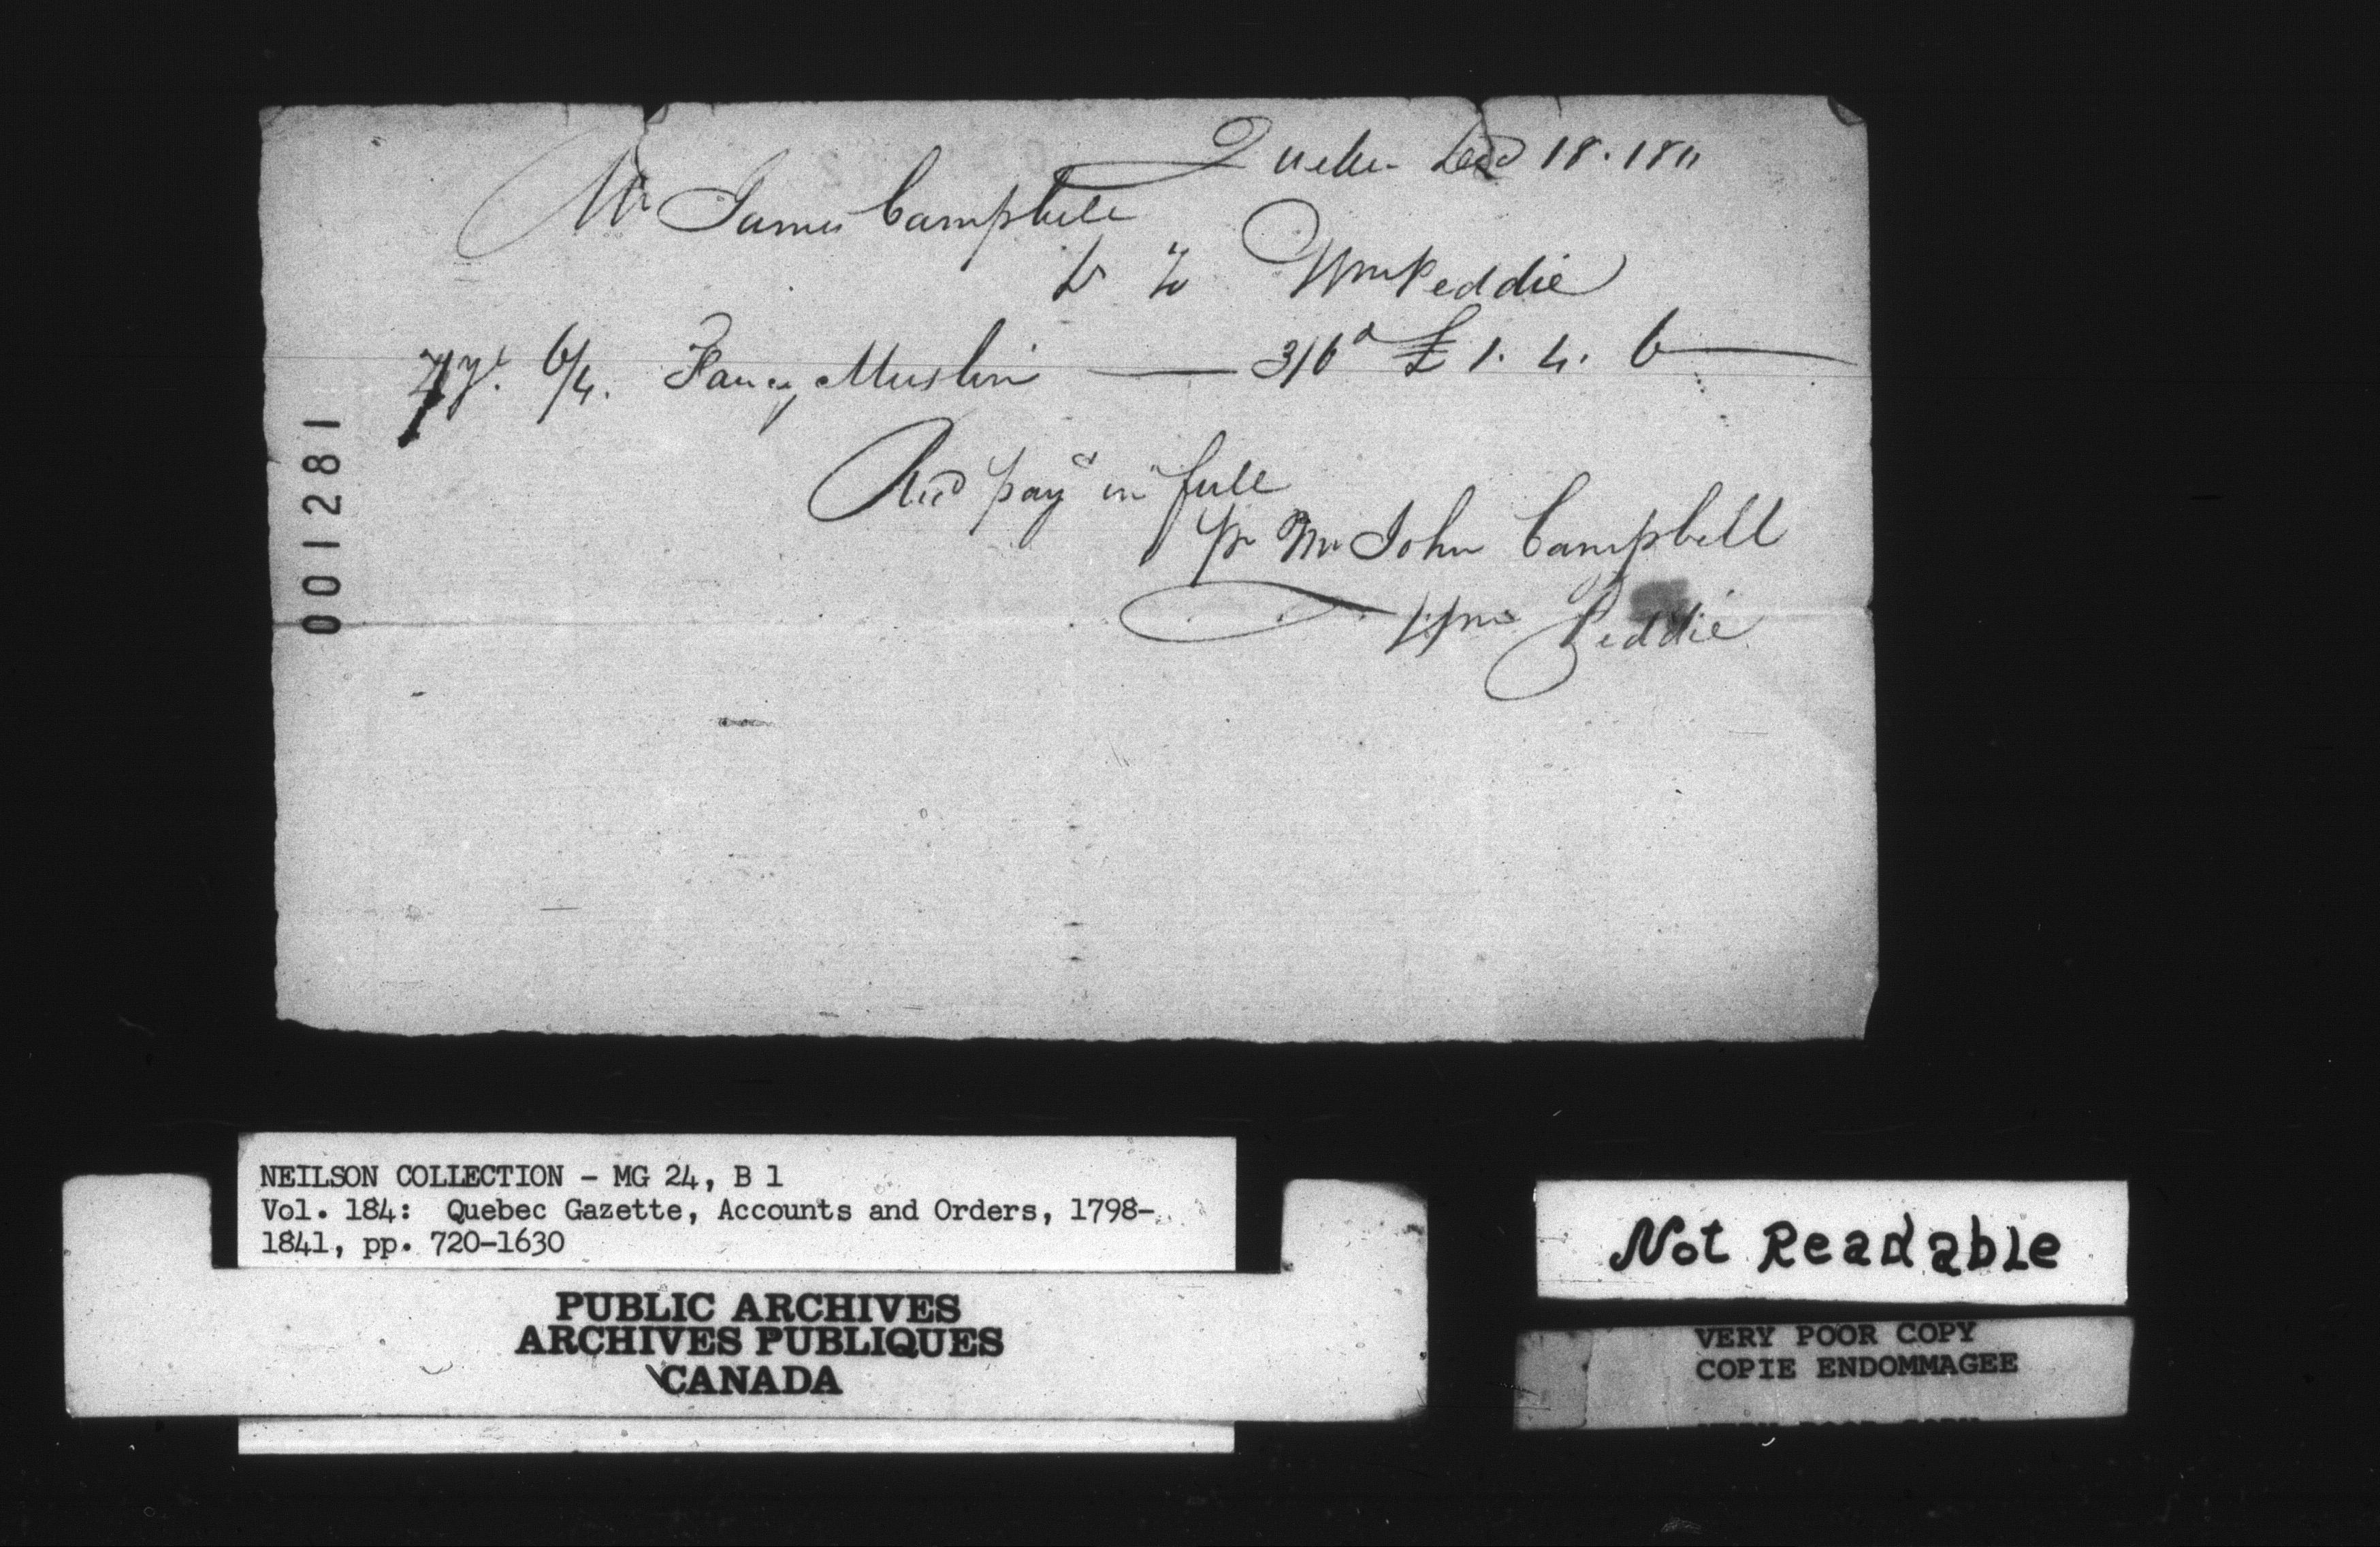 Quebec Decd 18. 1811
Mr James Campbell
Dr To Wm Peddie
7 yds 6/4. Fancy Muslin — 3/6d £ 1. 4. 6
Recd payt in full
pr Mr John Campbell
Wm Peddie
001281
NEILSON COLLECTION - MG 24, B 1
Vol. 184: Quebec Gazette, Accounts and Orders, 1798-
1841, pp. 720-1630
PUBLIC ARCHIVES
ARCHIVES PUBLIQUES
CANADA
Not Readable
VERY POOR COPY
COPIE ENDOMMAGEE